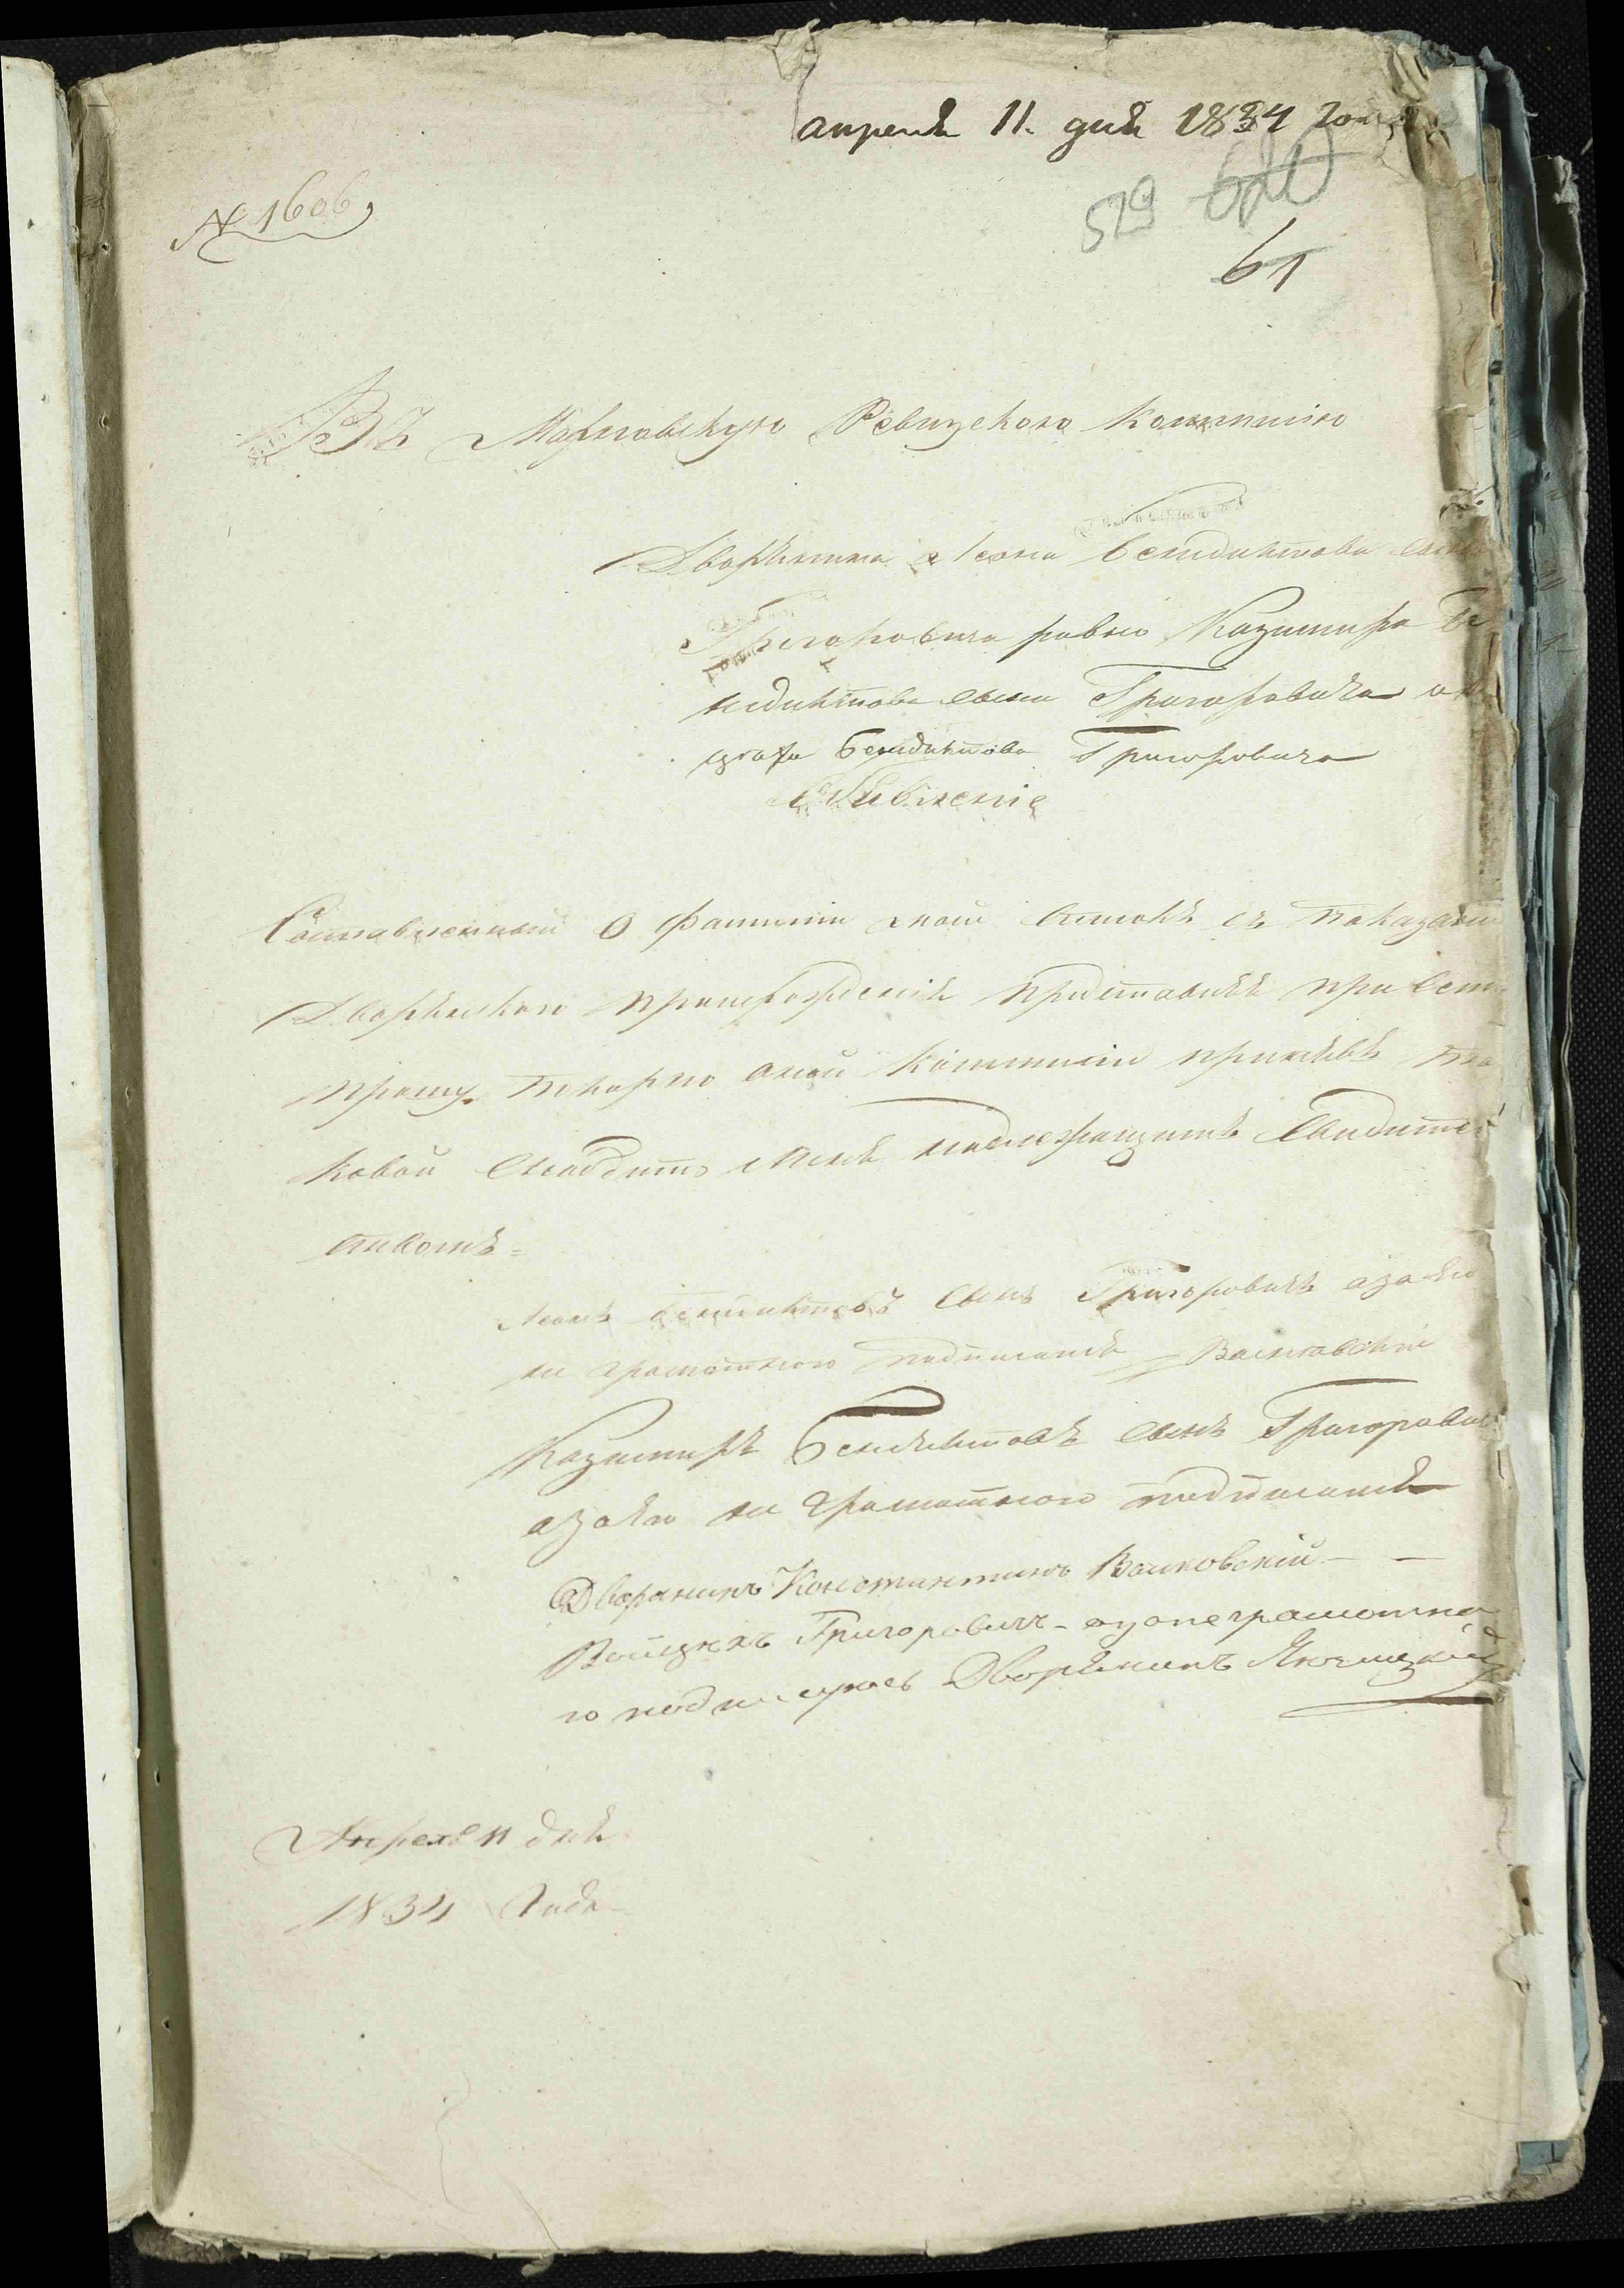 апреля 11. дня 1834 года
№ 1606
529 620
61
Въ Ревизскую Коммисію
Дворянина Леона Бенедиктова сына
Григоровича равно Казимира Бе
недиктова сына Григоровича и
Бенедиктова Григоровича
Объявленіе
Составленной о фамиліи моей списокъ съ показаніи
Дворянского происхожденія представляя при сем
прошу покорно оной Коммисіи принявъ та
ковой снабдить меня надлежащимъ Свидетель
ствомъ =
Леонъ Бенедиктовъ Сынъ Григоровичъ азаево
не грамотного подписался Валковскій
Казимиръ Бенедиктовъ сынъ Григорович
азаево не грамотного подписался
Дворянинъ Константинъ Валковскій
Войцехъ Григоровичъ - азонеграмотна
го подписуюсь Дворянинъ
Апреля 11 дня
1834 Года